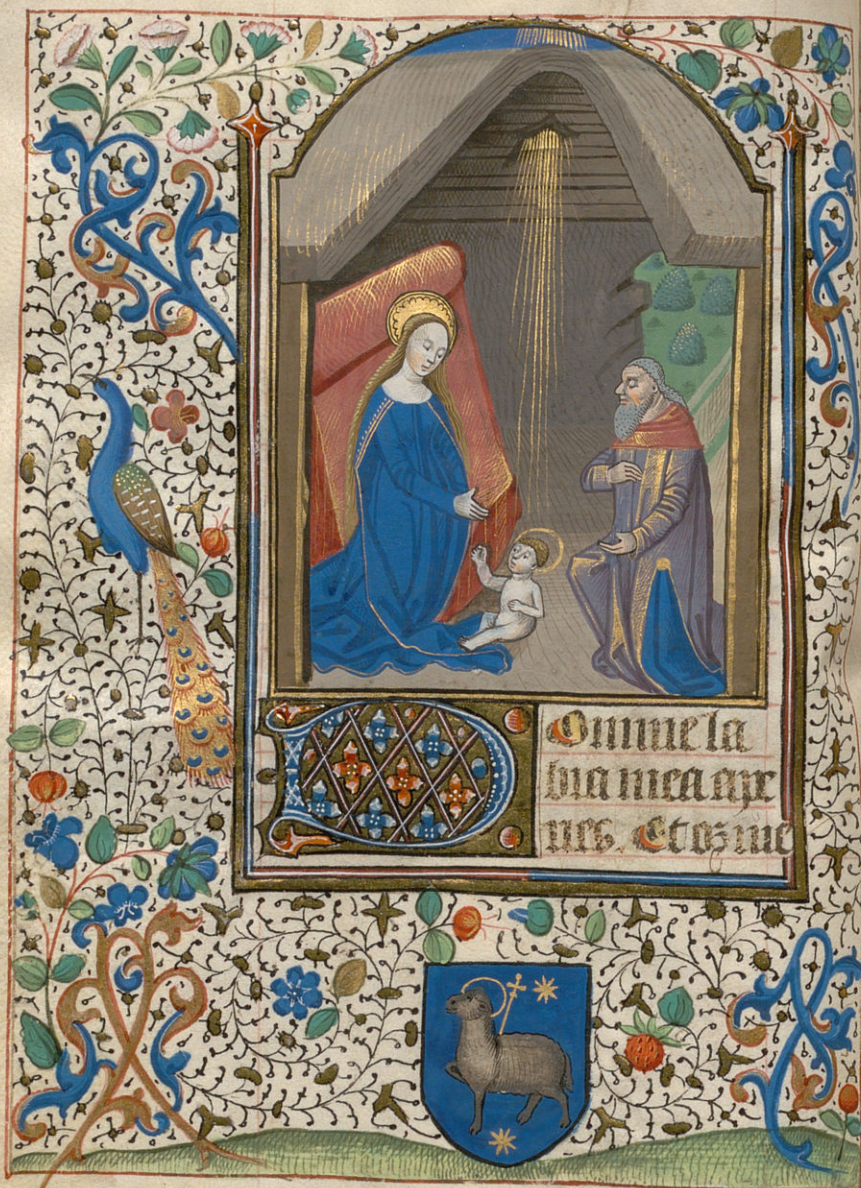 DOmine la
bia mea ape
ries. Et oz me